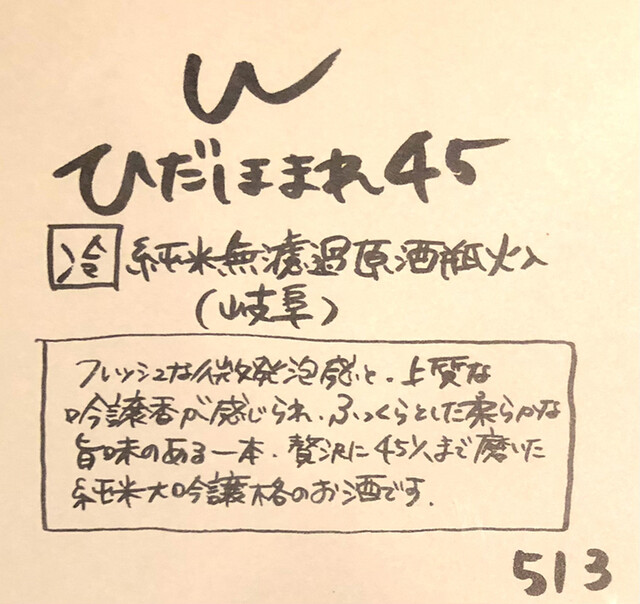 W
ひだほまれ45
冷 純米無濾過原酒瓶火入
(岐阜)
フレッシュな微発泡感と、上質な
吟譲香が感じられ、ふっくらとした柔らかな
旨味のある一本、贅沢に45%まで磨いた
純米大吟譲格のお酒です.
513